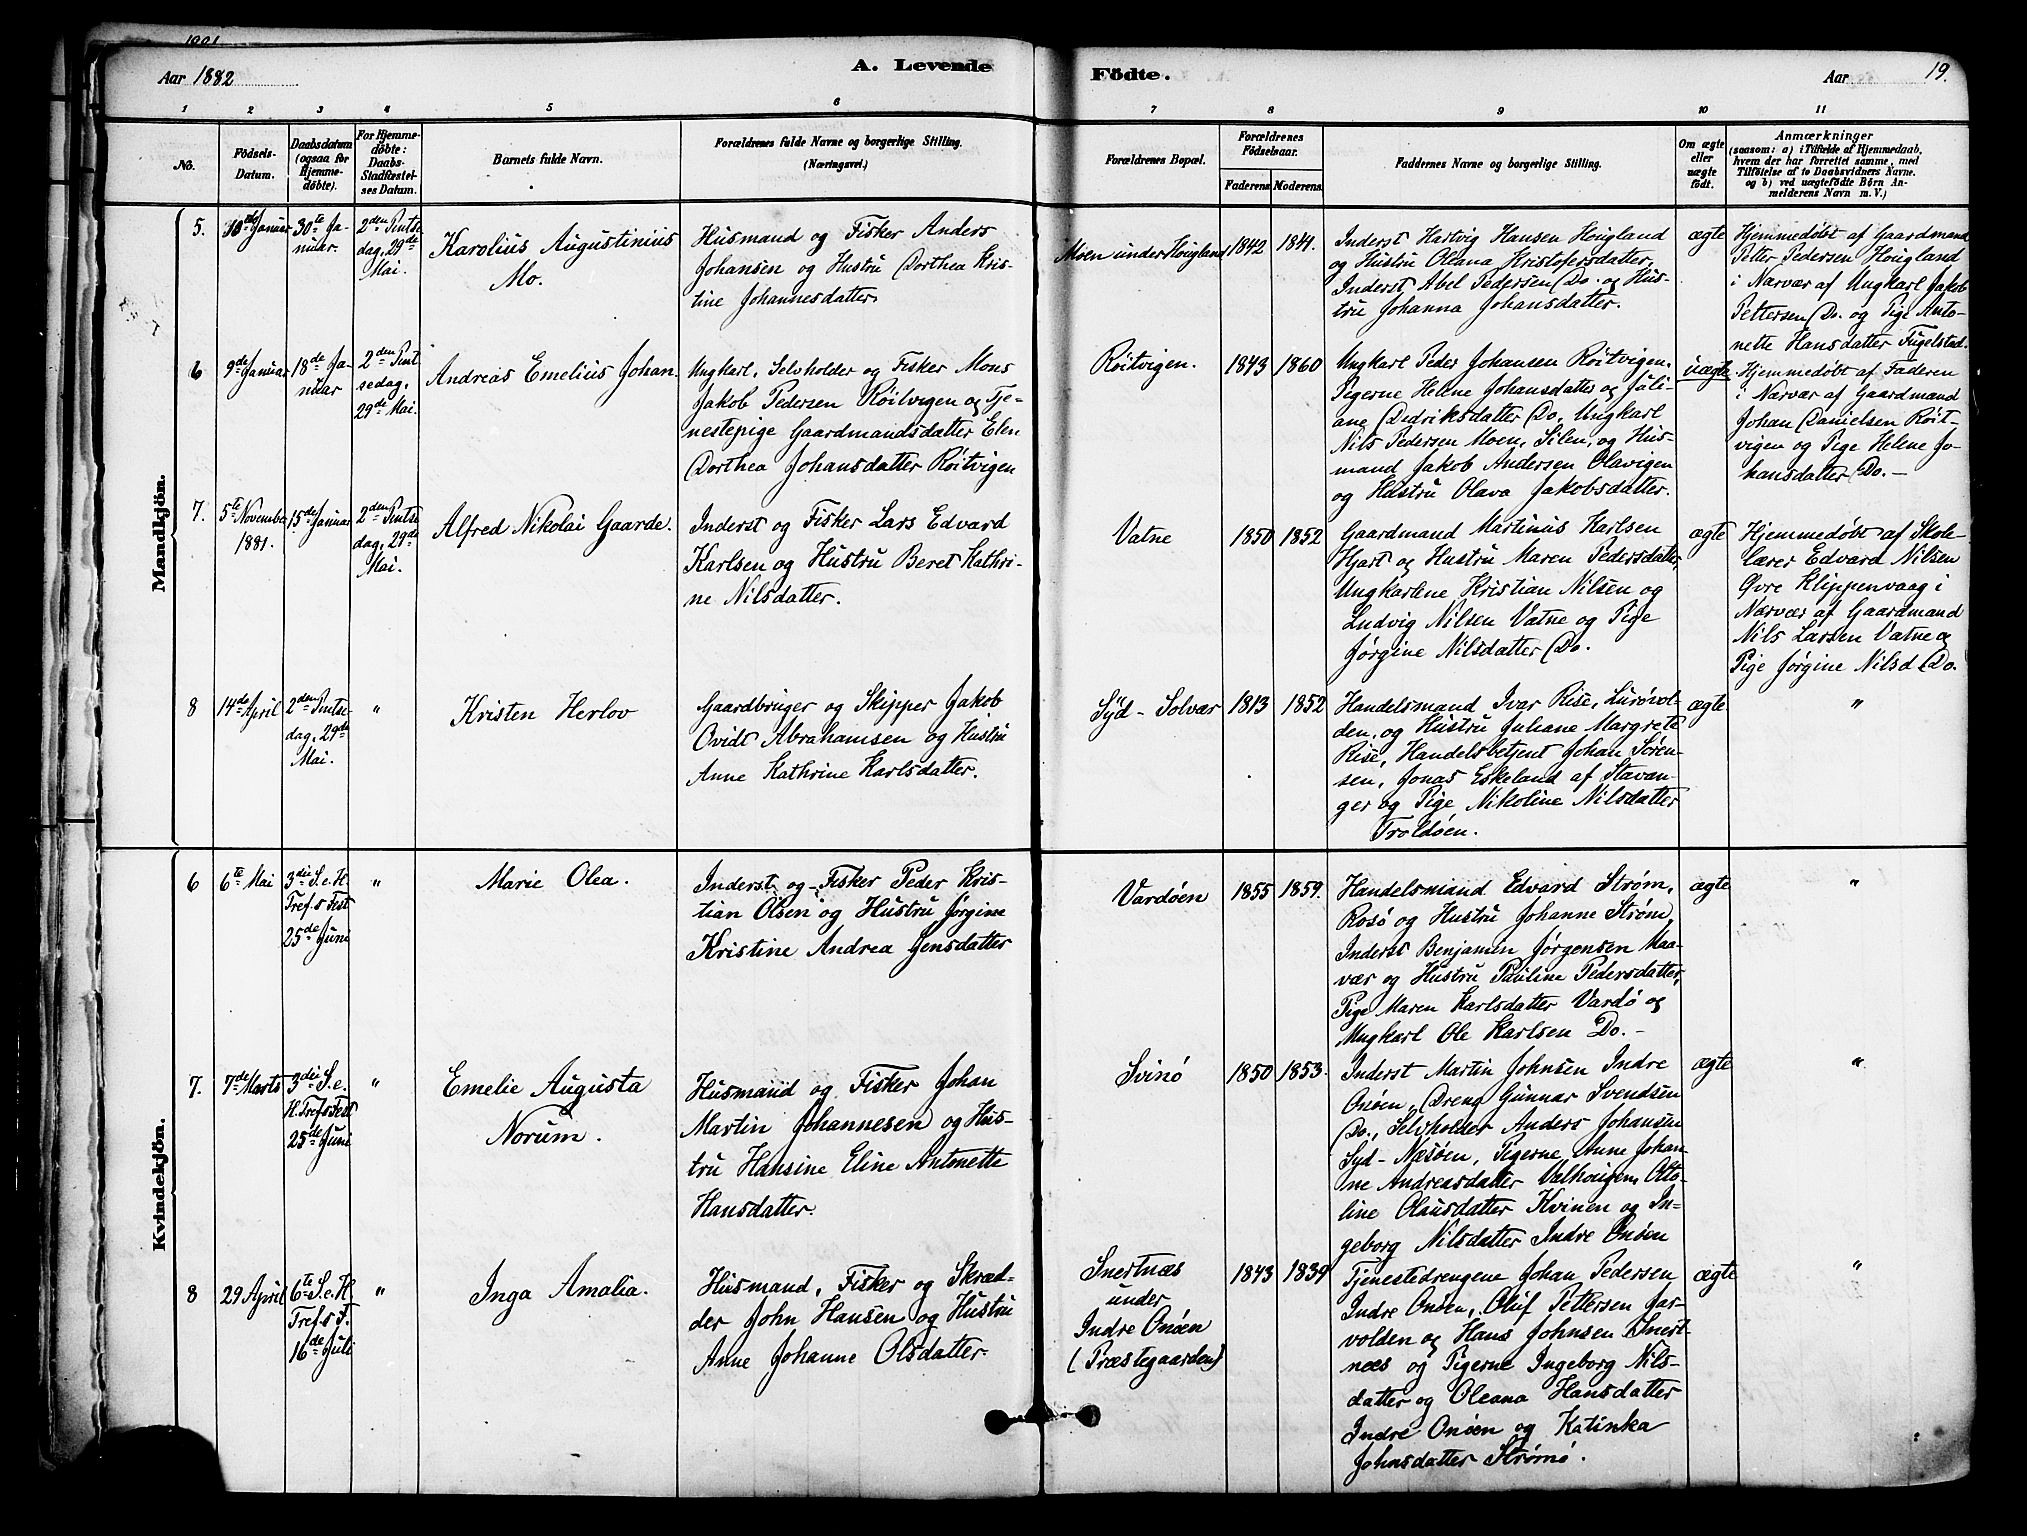 Aar 1882
A. Levende
Födte.
Aar
19.
1
2
3
4
5
6
7
8
9
10
11
No.
Födsels-
Datum.
Daabsdatum
(ogsaa for
Hjemme-
döbte).
For Hjemme-
döbte:
Daabs-
Stadfæstel-
ses Datum.
Barnets fulde Navn.
Forældrenes fulde Navne og borgerlige Stilling.
(Næringsvei.)
Forældrenes Bopæl.
Forældrenes
Födselsaar.
Faderens.
Moderens.
Faddernes Navne og borgerlige Stilling.
Om ægte
eller
uægte
födt.
Anmærkninger
(saasom: a) i Tilfælde af Hjemmedaab,
hvem der har forrettet samme, med
Tilföielse af to Daabsvidners Navne.
og b) ved uægtefödte Börn An-
melderens Navn m. V.)
Mandkjön.
5.
Januar
30te Ja-
nuar.
2den Pintse
dag, 29de
Mai.
Karolius Augustinius
Mo.
Husmand og Fisker Anders
Johansen og Hustru Dorthea Kris-
tine Johannesdatter.
Moen under Hougland
1842
1841.
Inderst Hartvig Hansen Hougland
og Hustru Oleana Kristofersdatter,
Inderst Abel Pedersen Do. og Hus-
tru Johanna Johansdatter.
ægte
Hjemmedøbt af Gaardmand
Petter Pedersen Hougland
i Nærvær af Ungkarl Jakob
Pettersen Do. og Pige Anto-
nette Hansdatter Fugelstad.
6
9de Januar
18de Ja-
nuar
2den Pint
sedag,
29de Mai.
Andreas Emelius Johan.
Ungkarl, Selvholder og Fisker Mons
Jakob Pedersen Röitvigen og Tje-
nestepige Gaardmandsdatter Elen
Dorthea Johansdatter Röitvigen
Röitvigen.
1843
1860
Ungkarl Peder Johansen Röitvigen,
Pigerne Helene Johansdatter og Juli-
ane Didriksdatter Do, Ungkarl
Nils Pedersen Moen, Silen, og Hus-
mand Jakob Andersen Olavigen
og Hustru Olava Jakobsdatter.
uægte
Hjemmedøbt af Faderen
i Nærvær af Gaardmand
Johan Danielsen Röit-
vigen og Pige Helene Jo-
hansdatter Do. -
7.
5te November
1881.
15de Januar
2den Pintse
dag, 29de
Mai.
Alfred Nikolai Gaarde.
Inderst og Fisker Lars Edvard
Karlsen og Hustru Beret Kathri-
ne Nilsdatter.
Vatne
1850
1852
Gaardmand Martinus Karlsen
Hjart og Hustru Maren Pedersdatter,
Ungkarlene Kristian Nilsen og
Ludvig Nilsen Vatne og Pige
Jørgine Nilsdatter Do.
ægte
Hjemmedøbt af Skole-
lærer Edvard Nilsen
Øvre Klippenvaag i
Nærvær af Gaardmand
Nils Larsen Vatne og
Pige Jørgine Nilsd Do.
8
14de April
2den Pintse-
dag, 29de
Mai.
"
Kristen Herlov
Gaardbruger og Skipper Jakob
Ovidt Abrahamsen og Hustru
Anne Kathrine Karlsdatter.
Syd-Solvær
1813
1852
Handelsmand Ivar Rise, Lurøvol-
den, og Hustru Juliane Margrete
Rise, Handelsbetjent Johan Søren-
sen, Jonas Eskeland af Stavan-
ger og Pige Nikoline Nilsdatter
Troldøen.
ægte
"
Kvindekjön.
6
6te Mai
3die S.e.H.
Tref.s Fest
25de Juni
"
Marie Olea.
Inderst og Fisker Peder Kris-
tian Olsen og Hustru Jørgine
Kristine Andrea Jensdatter
Vardøen
1855
1859.
Handelsmand Edvard Strøm,
Rosö og Hustru Johanne Strøm,
Inderst Benjamin Jørgensen Maa-
vær og Hustru Pauline Pedersdatter,
Pige Maren Karlsdatter Vardö og
Ungkarl Ole Karlsen Do. -
ægte
"
7.
7de Marts
3die S.e.
H.Tref.s Fest
25de Juni
"
Emelie Augusta
Norum.
Husmand og Fisker Johan
Martin Johannesen og Hus-
tru Hansine Eline Antonette
Hansdatter.
Svinö
1850
1853.
Inderst Martin Johnsen Indre
Onöen, Dreng Gunnar Svendsen
Do., Selvholder Anders Johansen
Syd-Næsöen, Pigerne Anne Johan-
ne Andreasdatter Valhougen, Otto-
line Olausdatter Kvinen og In-
geborg Nilsdatter Indre Onöen
ægte
"
8
29 April
6te S.e.H
Tref.s F.
16de Juli
"
Inga Amalia.
Husmand, Fisker og Skræd-
der John Hansen og Hustru
Anne Johanne Olsdatter.
Snertnæs
under
Indre Onöen
(Præstegaarden)
1843
1839
Tjenestedrengene Johan Pedersen
Indre Onöen, Oluf Pettersen Jar-
volden og Hans Johnsen Snert-
næs og Pigerne Ingeborg Nils-
datter og Oleana Hansdatter
Indre Onöen og Katinka
Johnsdatter Strømö.
ægte
"